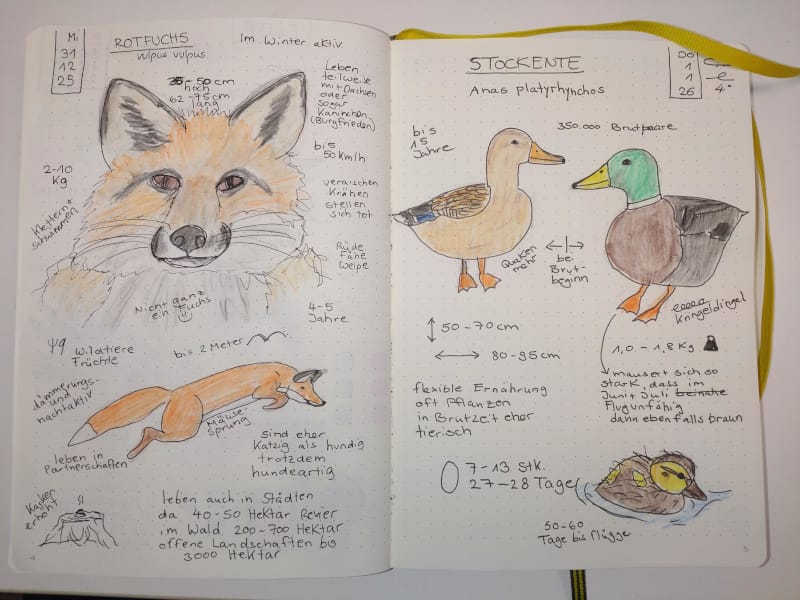 Mi
31
12
25
ROTFUCHS
vulpus vulpus
Im Winter aktiv
35-50 cm
hoch
62-75cm
lang
Leben
teilweise
mit Dachsen
oder
sogar
Kaninchen
(Burgfrieden)
bis
50 km/h
2-10
Kg
Klettern +
schwimmen
veraischen
Krähen
stellen
sich tot
Rüde
Fähe
Welpe
Nicht ganz
ein Fuchs
4-5
Jahre
Wildtiere
Früchte
bis 2 Meter
dämmerungs-
und
nachtaktiv
Mäuse-
sprung
leben in
Partnerschaften
sind eher
Katzig als hundig
trotzdem
hundeartig
Kacken
erhöht
leben auch in Städten
da 40-50 Hektar Revier
im Wald 200-700 Hektar
offene Landschaften bis
3000 Hektar
4
STOCKENTE
Anas platyrhynchos
Do
1
1
26
4°
bis
15
Jahre
350.000 Brutpaare
Quaken
mehr
bei
Brut-
beginn
Kringeldingel
50-70cm
80-95cm
1,0-1,8 Kg
flexible Ernährung
oft Pflanzen
in Brutzeit eher
tierisch
mausert sich so
stark, dass im
Juni+Juli beinahe
Flugunfähig
dann ebenfalls braun
7-13 Stk.
27-28 Tage
50-60
Tage bis flügge
5